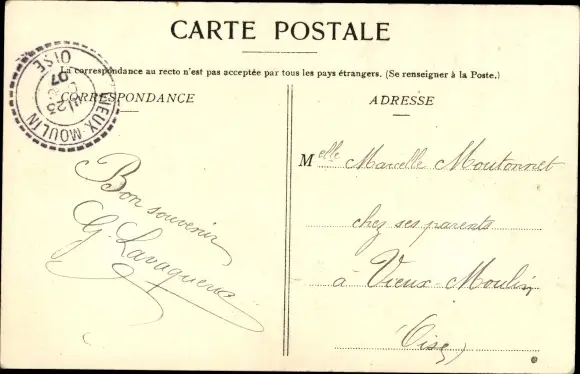 CARTE POSTALE
La correspondance au recto n'est pas acceptée par tous les pays étrangers. (Se renseigner à la Poste.)
VIEUX-MOULIN
23
07
OISE
CORRESPONDANCE
Bon souvenir
G. Lavaquerie
ADRESSE
Melle Marcelle Moutonnet
chez ses parents
à Vieux-Moulin
(Oise)